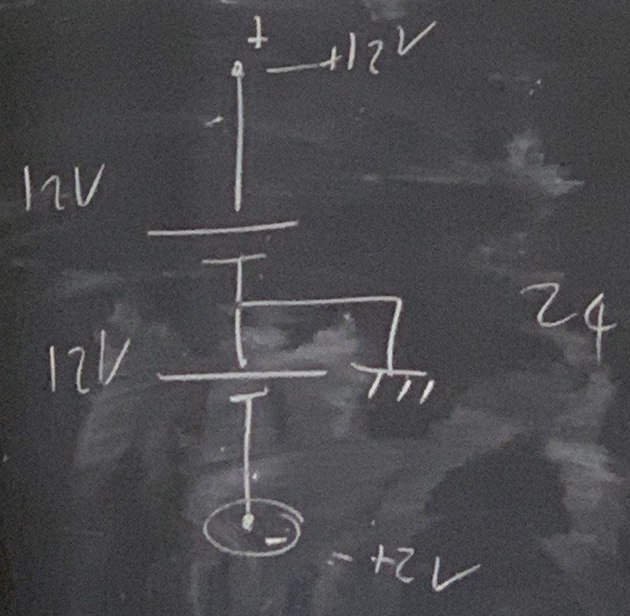 +
+12V
12V
24
12V
-
-12V